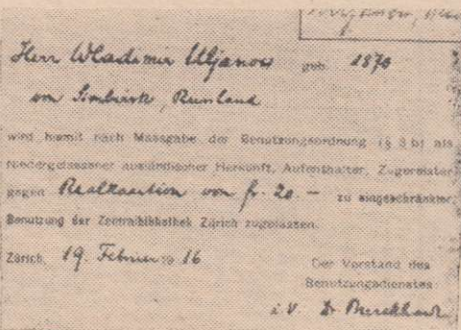 Herr Wladimir Uljanow geb. 1870
von Simbirsk, Russland
wird hiemit nach Massgabe der Benutzungsordnung (§ 3 b) als
niedergelassener ausländischer Herkunft, Aufenthalter, Zugereister
gegen Realkaution von fr. 20.– zu eingeschränkter
Benutzung der Zentralbibliothek Zürich zugelassen.
Zürich, 19. Februar 19 16
Der Vorstand des
Benutzungsdienstes
i. V. Dr Burckhardt